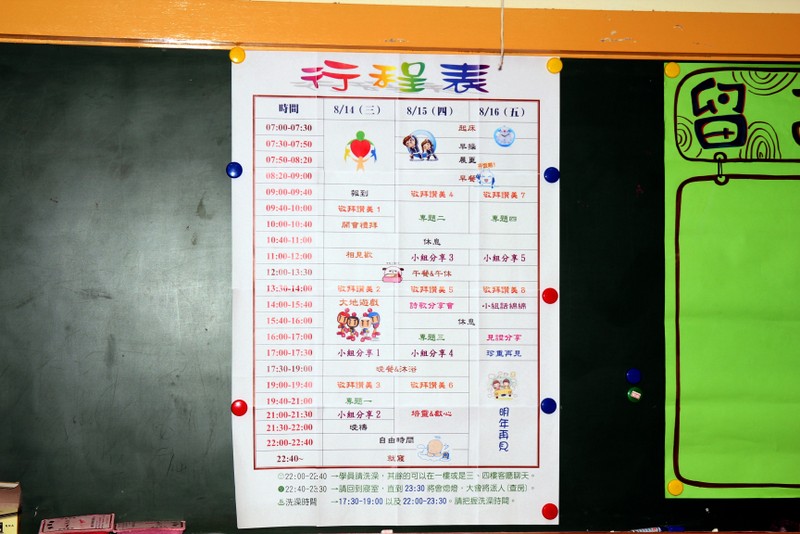 行程表
時間 8/14 (三) 8/15 (四) 8/16 (五)
07:00-07:30 起床
07:30-07:50 早操
07:50-08:20 晨更
08:20-09:00 早餐
09:00-09:40 報到 敬拜讚美4 敬拜讚美7
09:40-10:00 敬拜讚美1 專題二 專題四
10:00-10:40 開會禮拜
10:40-11:00 休息
11:00-12:00 相見歡 小組分享3 小組分享5
12:00-13:30 午餐&午休
13:30-14:00 敬拜讚美2 敬拜讚美5 敬拜讚美8
14:00-15:40 大地遊戲 詩歌分享會 小組話綿綿
15:40-16:00 休息
16:00-17:00 專題三 見證分享
17:00-17:30 小組分享1 小組分享4 珍重再見
17:30-19:00 晚餐&沐浴
19:00-19:40 敬拜讚美3 敬拜讚美6
19:40-21:00 專題一 培靈&獻心 明年再見
21:00-21:30 小組分享2
21:30-22:00 晚禱
22:00-22:40 自由時間
22:40~ 就寢
22:00-22:40 →學員請洗澡,其餘的可以在一樓或是三、四樓客廳聊天。
22:40-23:30 →請回到寢室,直到 23:30 將會熄燈,大會將派人(查房)。
洗澡時間 →17:30-19:00 以及 22:00-23:30。請把握洗澡時間。
留